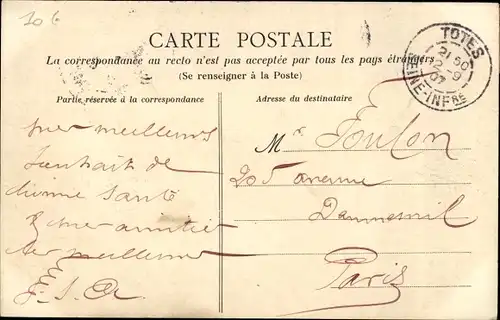 10 6
CARTE POSTALE
La correspondance au recto n'est pas acceptée par tous les pays étrangers
(Se renseigner à la Poste)
TOTES
21 50
2-9
07
SEINE-INFRE
Partie réservée à la correspondance
Adresse du destinataire
mes meilleurs
souhaits de
bonne santé
& mes amitiés
les meilleures
Mr. Foulon
205 avenue
Daumesnil
Paris